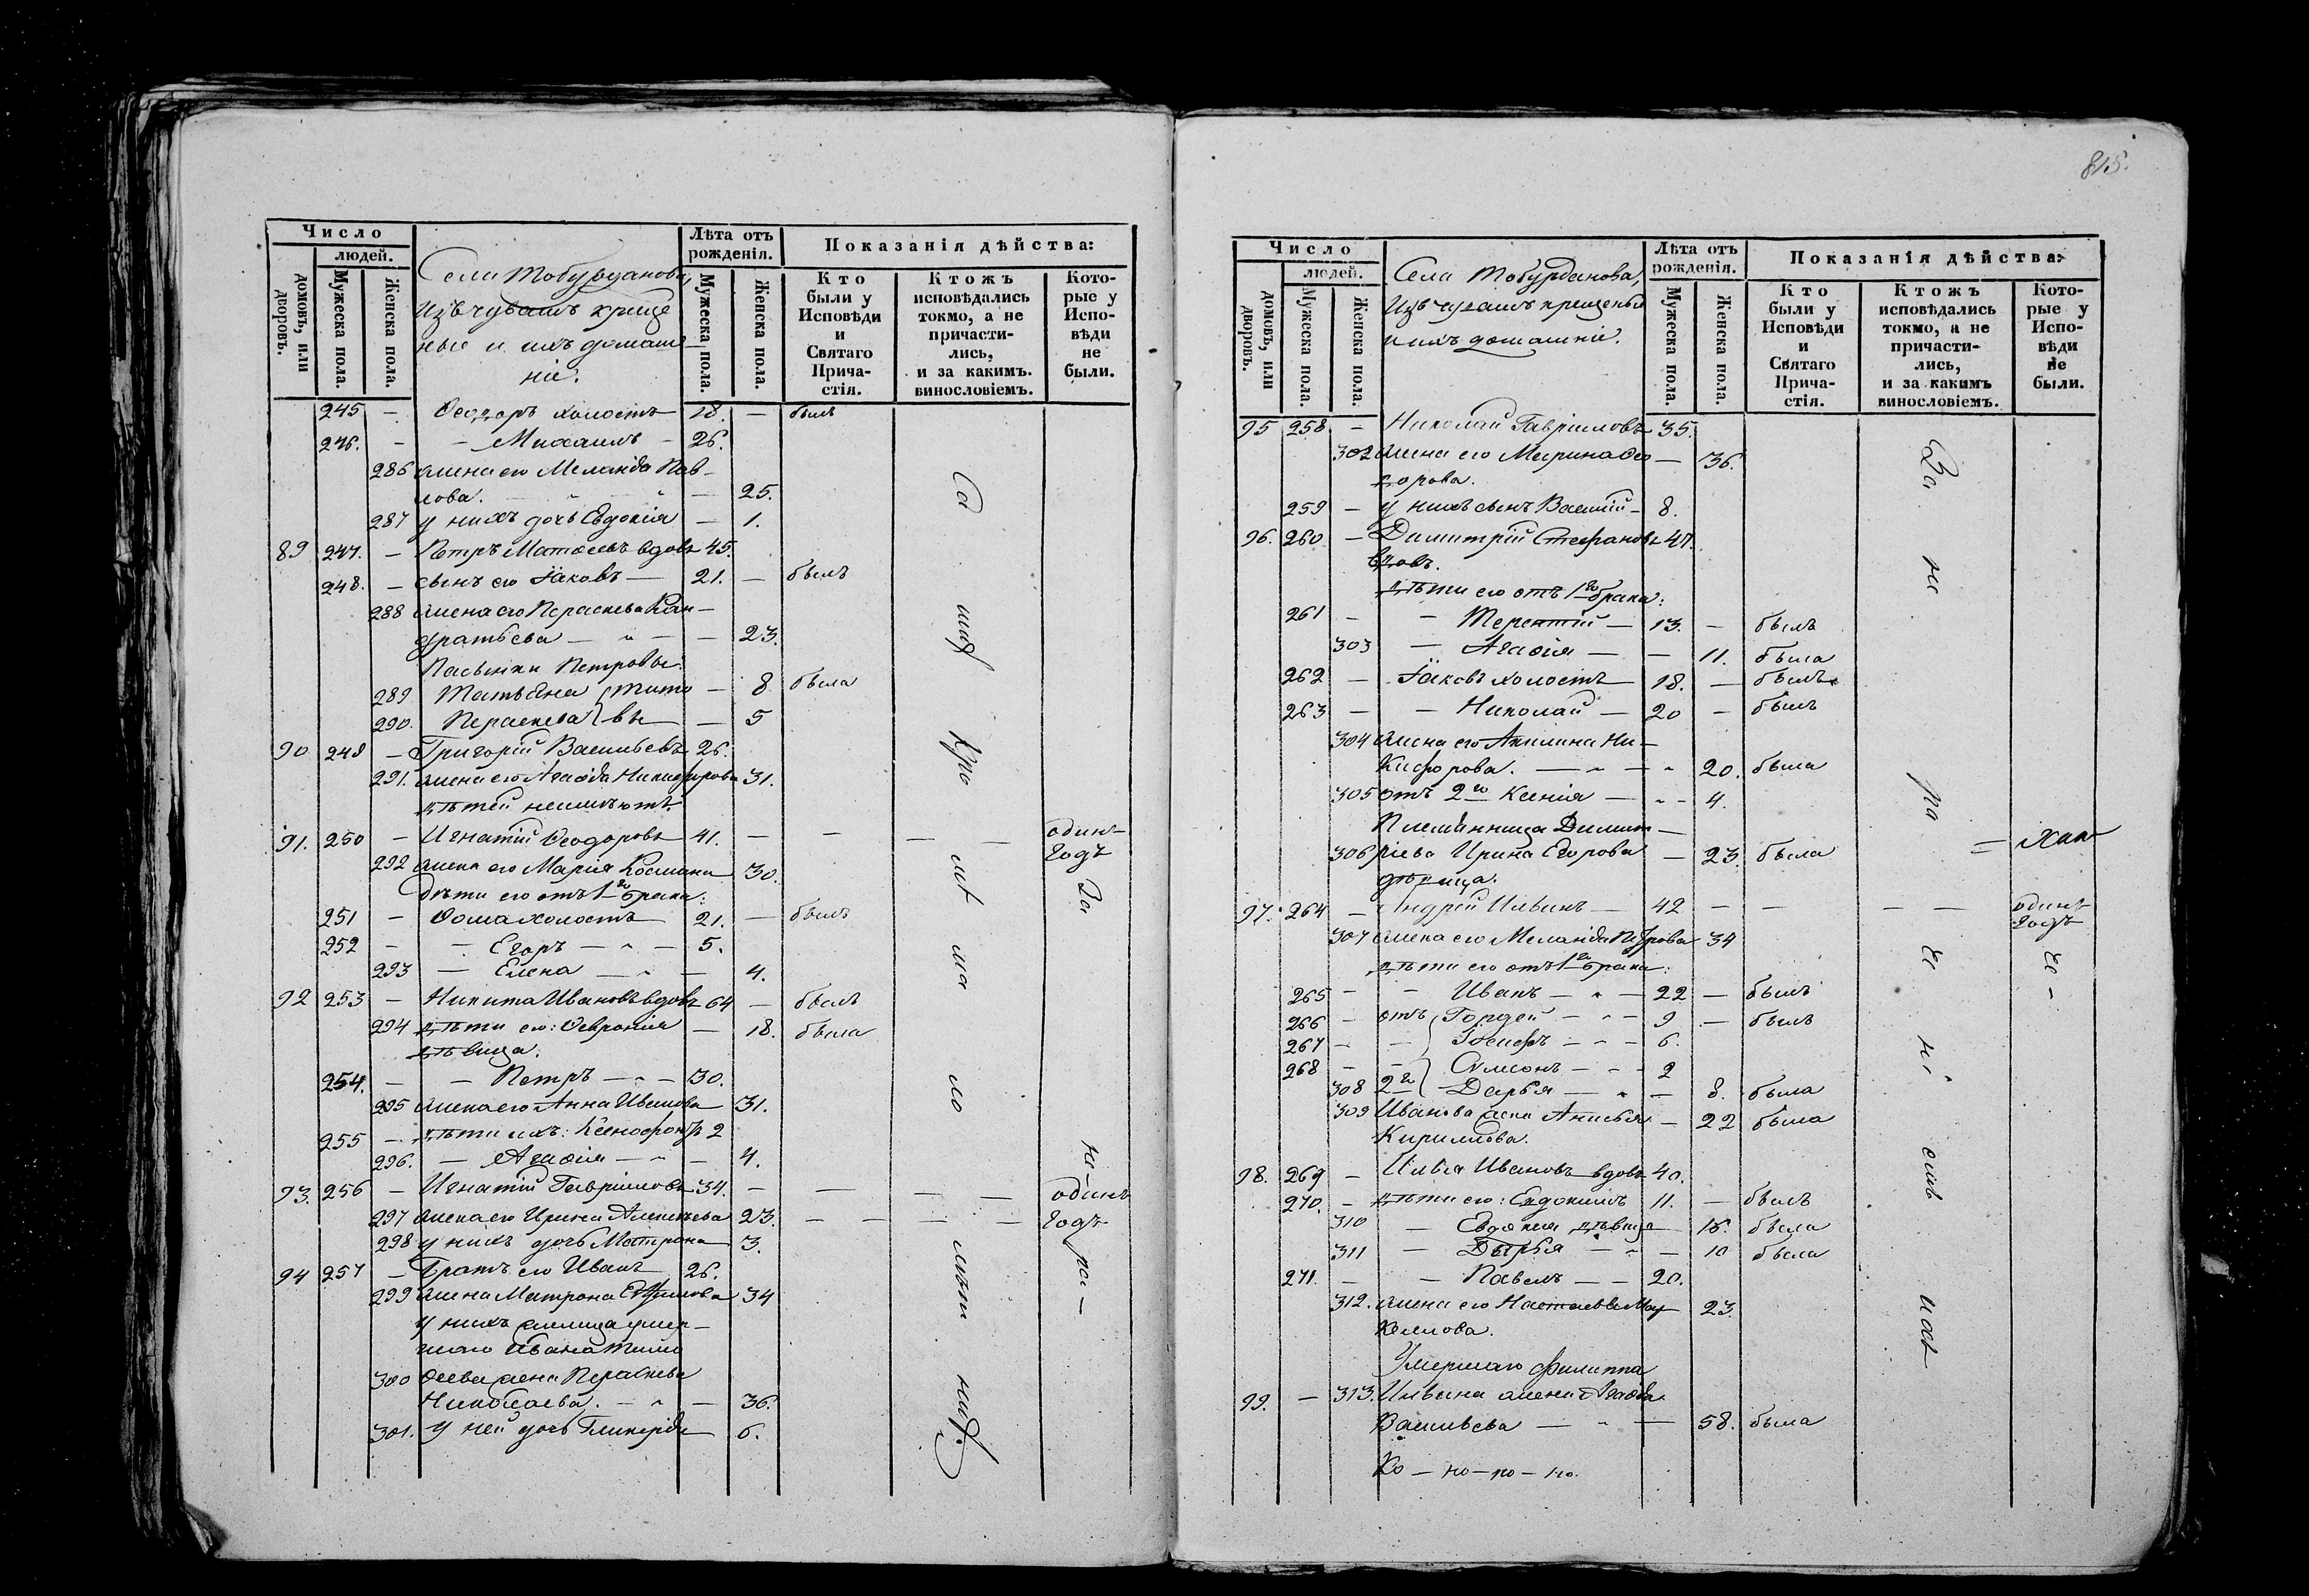 Число
людей.
домовъ, или дворовъ.
Мужеска пола.
Женска пола.
Села Тобурданова,
Изъ чувашъ креще
ные и ихъ домаш
ніе.
Лѣта отъ рожденія.
Мужеска пола.
Женска пола.
Показанія дѣйства:
Кто были у Исповѣди и Святаго Прича- стія.
Ктожъ исповѣдались токмо, а не причасти- лись, и за какимъ. винословіемъ.
Кото- рые у Испо- вѣди не были.
245 – Ѳеодоръ холостъ 18. – былъ
246. – – Михаилъ – 26.
286 жена его Меланія Пав–
лова. – 25.
287 у нихъ дочь Евдокія – 1.
89 247. – Петръ Матѳеевъ вдовъ 45.
248. – сынъ его Іаковъ – 21. – былъ
288 жена его Параскева Кан–
дратьева – " – – 23.
Пасынки Петровы.
289 Татьяна } Тито – 8 была
290. Параскева } вы – – 5
90 249 – Григорій Васильевъ 26.
291. жена его Агаѳія Никифорова 31.
дѣтей неимѣютъ
91. 250 – Игнатій Ѳеодоровъ 41. – – – – одинъ
годъ
292 жена его Марія Космина 30.
Дѣти его отъ 1го брака:
251 – Ѳома холостъ 21. – былъ
252 – – Егоръ – " – 5.
293 – Елена – " – 4.
92 253 – Никита Ивановъ вдовъ 64 – былъ
294 дѣти его: Ѳевронія – 18. была
дѣвица.
254. – – Петръ – " – 30.
295 жена его Анна Иванова 31.
255 – дѣти ихъ: Ксенофонтъ 2
296. – Агаѳія – " – 4.
93. 256 – Игнатій Гавриловъ 34. – – – – одинъ
297 жена его Ирина Алексѣева 23. – – – – годъ
298 у нихъ дочь Матрона 3.
94 257 – Братъ его Иванъ 26.
299 жена Матрона Евѳимова 34
у нихъ
шаго Ивана Тимо
300 ѳеева жена Параскева
Николаева. – " – 36.
301. у ней дочь Гликерія 6.
За
не
ра
815.
Число
людей.
домовъ, или дворовъ.
Мужеска пола.
Женска пола.
Села Тобурданова,
Изъ чувашъ крещеныя
и ихъ домашніе.
Лѣта отъ рожденія.
Мужеска пола.
Женска пола.
Показанія дѣйства:
Кто были у Исповѣди и Святаго Прича- стія.
Ктожъ исповѣдались токмо, а не причасти- лись, и за какимъ винословіемъ.
Кото- рые у Испо- вѣди не были.
95 258 – Николай Гавриловъ 35.
302 жена его Марина Ѳео – 36.
дорова.
259 – у нихъ сынъ Василій – 8.
96. 260 – Димитрій Стефановъ 47.
вдовъ.
дѣти его отъ 1го брака:
261 – – Терентій – 13. – былъ
303 – Агаѳія – – 11. была
262 – Іаковъ холостъ 18. – былъ
263 – – Николай – 20 – былъ
304 жена его Акилина Ни–
кифорова. – " – " 20. была
305 отъ 2го Ксенія – " – 4.
Племянница Димит–
306 ріева Ирина Егорова – 23. была
дѣвица.
97. 264 – Андрей Ильинъ – 42 – – – – одинъ
годъ
307 жена его Меланія Петрова 34
дѣти его отъ 1го брака:
265 – – Иванъ – " – 22 – былъ
266 – отъ { Гордей – " – 9 – былъ
267 – – { Іосифъ – " – 6.
268 – – { Симеонъ – " – 2
308 2го { Дарья – " – 8. была
309 Иванова жена Анисья – 22 была
Кириллова.
98. 269 – Илья Ивановъ вдовъ 40.
270. – дѣти его: Евдокимъ 11. – былъ
310 – Евдокія дѣвица 16. была
311 – Дарья – " – 10 была
271. – – Павелъ – – 20.
312. жена его Настасья Мар 23.
келлова.
Умершаго Филиппа
99. – 313. Ильина жена Агаѳія
Васильева – " – 58. была
Ко – но – ко – но.
За
не
ра
че
ні
емъ